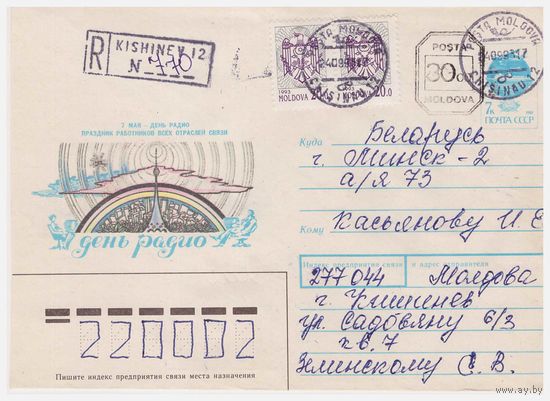 R KISHINEV 12
N 770
1993 MOLDOVA 20.0
20.0
POȘTA MOLDOVA
CHIȘINĂU 12
POȘTA
30
MOLDOVA
POȘTA MOLDOVA
CHIȘINĂU 12
7к
ПОЧТА СССР
7 МАЯ – ДЕНЬ РАДИО
ПРАЗДНИК РАБОТНИКОВ ВСЕХ ОТРАСЛЕЙ СВЯЗИ
день радио
Куда Беларусь
г. Минск-2
а/я 73
Кому Касьянову И. Е
Индекс предприятия связи и адрес отправителя
277044 Молдова
г. Кишинев
ул. Садовяну 6/3
кв. 7
Зелинскому С. В.
220002
Пишите индекс предприятия связи места назначения
www.ay.by